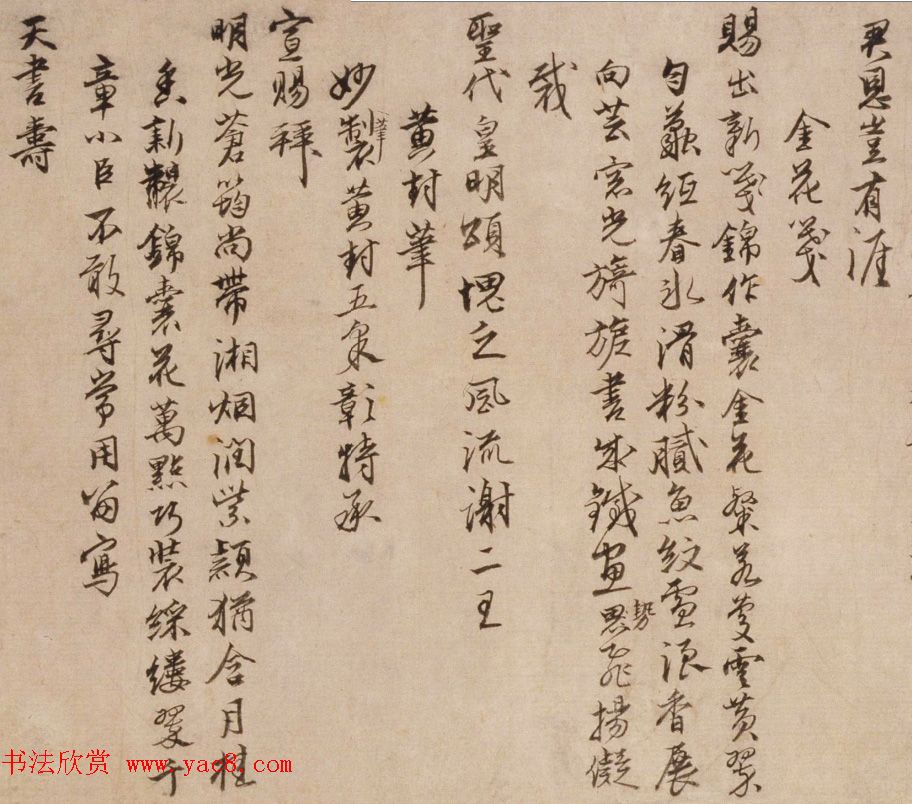 君恩豈有涯
金花箋
賜出新箋錦作囊金花粲若蔓雲黄翠
勻蠶紙春冰滑粉膩魚紋雪浪香展
向芸窓光旖旎書成鐵畫思勢飛揚儗
裁
聖代皇明頌愧乏風流謝二王
黄封筆
妙筆製黄封五采彰特承
宣賜拜
明光蒼筠尚帶湘烟潤紫穎猶含月桂
香新製錦囊花萬點巧裝綵縷翠千
章小臣不敢尋常用留寫
天書壽
书法欣赏 www.yac8.com